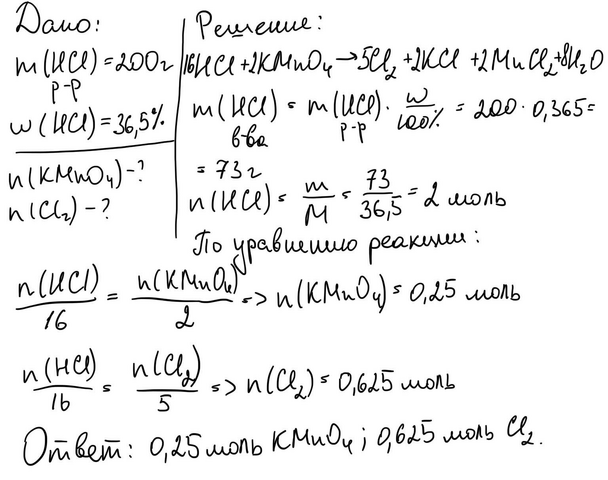 Дано:
m(HCl)=200г
р-р
w(HCl)=36,5%
n(KMnO₄)-?
n(Cl₂)-?
Решение:
16HCl+2KMnO₄→5Cl₂+2KCl+2MnCl₂+8H₂O
m(HCl) = m(HCl)·w/100% = 200·0,365=
в-ва р-р
= 73г
n(HCl) = m/M = 73/36,5 = 2 моль
По уравнению реакции:
n(HCl)/16 = n(KMnO₄)/2 => n(KMnO₄) = 0,25 моль
n(HCl)/16 = n(Cl₂)/5 => n(Cl₂) = 0,625 моль
Ответ: 0,25 моль KMnO₄; 0,625 моль Cl₂.